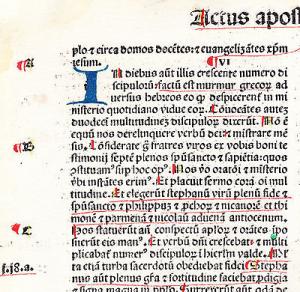 Actus apost
plo ⁊ circa domos docētes: ⁊ euangelizātes xp̄m
iesum. ¶ VI
A
IN diebus aūt illis crescente numero di
scipuloꝝ: factū est murmur grecoꝝ ad
uersus hebreos eo ꝙ despicerent̄ in mi
nisterio quotidiano vidue eoꝝ. Cōuocātes autez
duodeci multitudinez discipuloꝝ dixerūt. Nō ē
equū nos derelinquere verbū dei: ⁊ mīstrare mē
B
sis. Cōsiderate ḡ fratres viros ex vobis boni te
stimonij septē plenos sp̄usancto ⁊ sapiētia: quos
⁊stituam᷒ suꝑ hoc opꝰ. Nos vo oratōi ⁊ mīsterio
vbi instātes erimꝰ. Et placuit sermo corā oī mul
titudine. Et elegerūt stephanū virū plenū fide ⁊
sp̄usancto ⁊ philippū ⁊ ꝓchoꝝ ⁊ nicanorē ⁊ thi
monē ⁊ parmenā ⁊ nicolaū aduenā antiocenum.
Hos statuerūt an̄ conspectū apl'oꝝ ⁊ orātes īpo
suerūt eis manꝰ. Et verbū dn̄i crescebat ⁊ multi
plicabat̄ numerꝰ discipuloꝝ ī hierlm valde.
C
f.18.a.
ta etiā turba sacerdotū obediebat fidei Stepha
nus aūt plenus gr̄a ⁊ fortitudine faciebat ꝓdigia